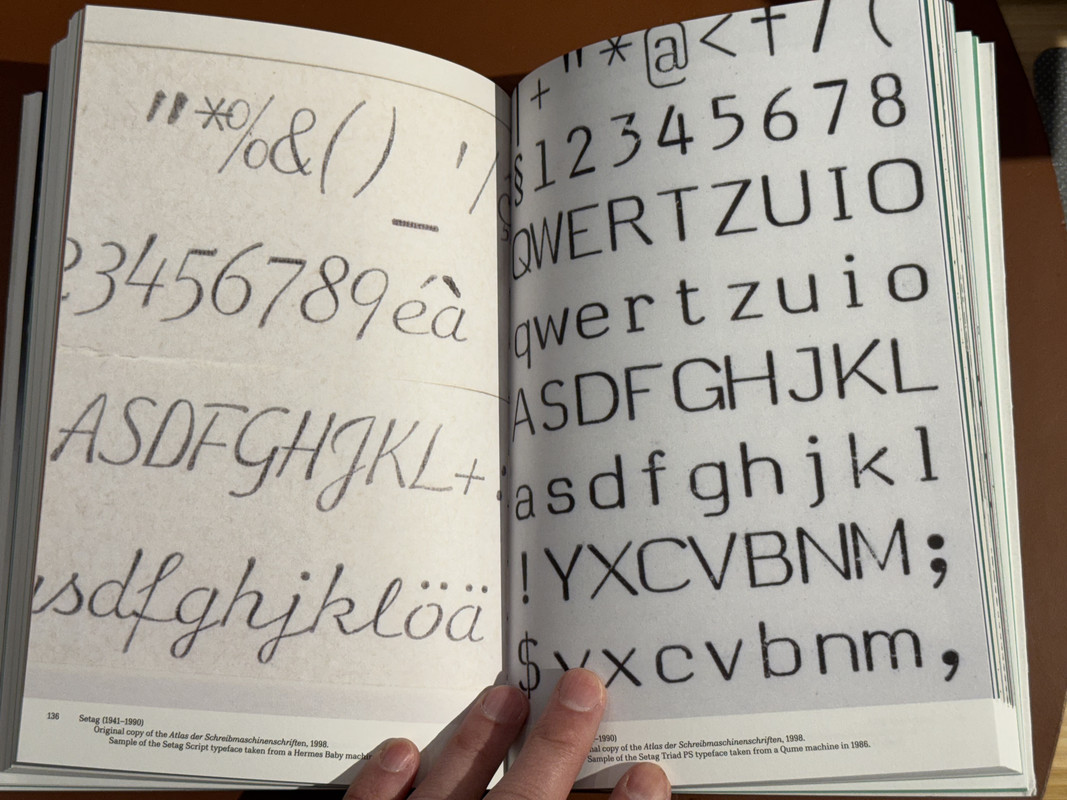 "*%&()_'/
23456789éà
ASDFGHJKL+
asdfghjklöä
136 Setag (1941–1990)
Original copy of the Atlas der Schreibmaschinenschriften, 1998.
Sample of the Setag Script typeface taken from a Hermes Baby
+"*@<†/(
§12345678
QWERTZUIO
qwertzuio
ASDFGHJKL
asdfghjkl
!YXCVBNM;
$yxcvbnm,
–1990)
copy of the Atlas der Schreibmaschinenschriften, 1998.
Sample of the Setag Triad PS typeface taken from a Qume machine in 1986.